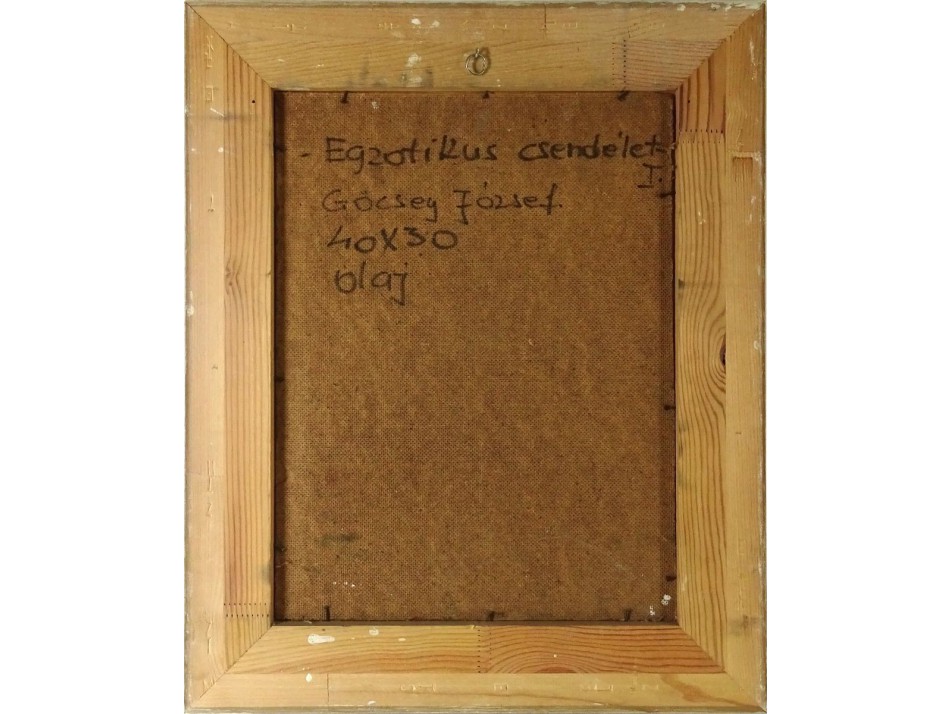 - Egzotikus csendélet-
I.
Göcsey József.
40X30
olaj